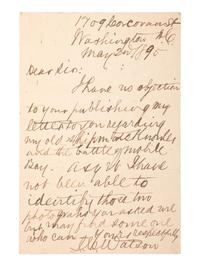 1709 Corcoran St
Washington D.C.
May 2nd 1890
Dear Sir:
I have no objection
to your publishing my
letter to you regarding
my old ship
and the battle of Mobile
Bay. As yet I have
not been able to
identify those two
photographs you asked me
but may find some one
who can Yours respectfully
Watson